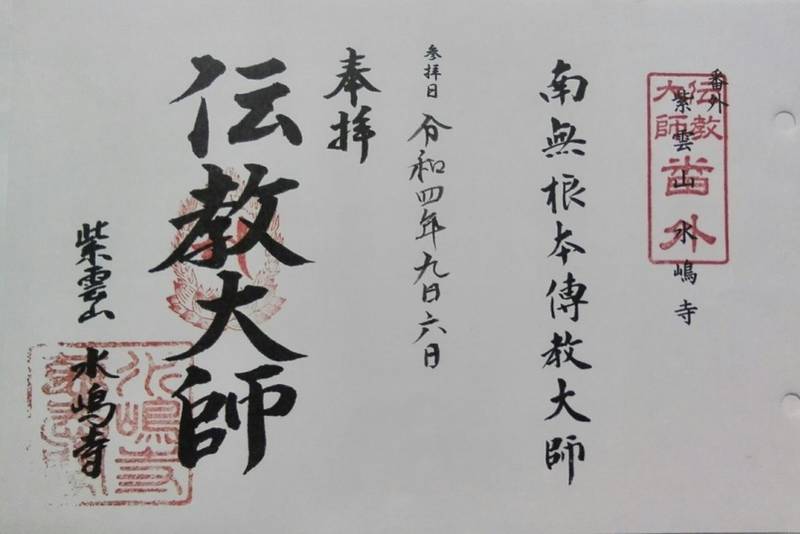 番外
紫雲山 水嶋寺
伝教
大師
番外
南無根本傳教大師
参拝日 令和四年九月六日
奉拝
伝教大師
紫雲山 水嶋寺
水嶋寺